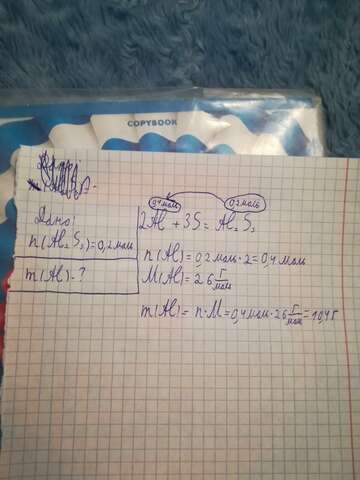 COPYBOOK
0,4 моль 0,2 моль
Дано:
2Al + 3S = Al₂S₃
n(Al₂S₃)=0,2 моль
n(Al)=0,2 моль·2=0,4 моль
m(Al)-?
M(Al)=26 г/моль
m(Al)= n·M=0,4 моль·26 г/моль=10,4 г